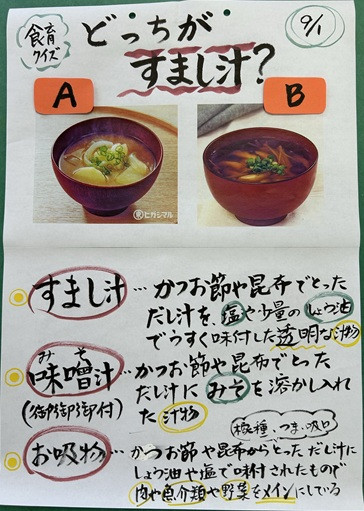 食育
クイズ
どっちが
すまし汁?
9/1
A
B
ヒガシマル
すまし汁…かつお節や昆布でとった
だし汁を、塩や少量のしょう油
でうすく味付した透明な汁物
みそ
味噌汁…かつお節や昆布でとった
(御御御付)
だし汁にみそを溶かし入れ
た汁物
椀種、つま、吸口
お吸物…かつお節や昆布からとっただし汁に
しょう油や塩で味付されたもので
肉や魚介類や野菜をメインにしている